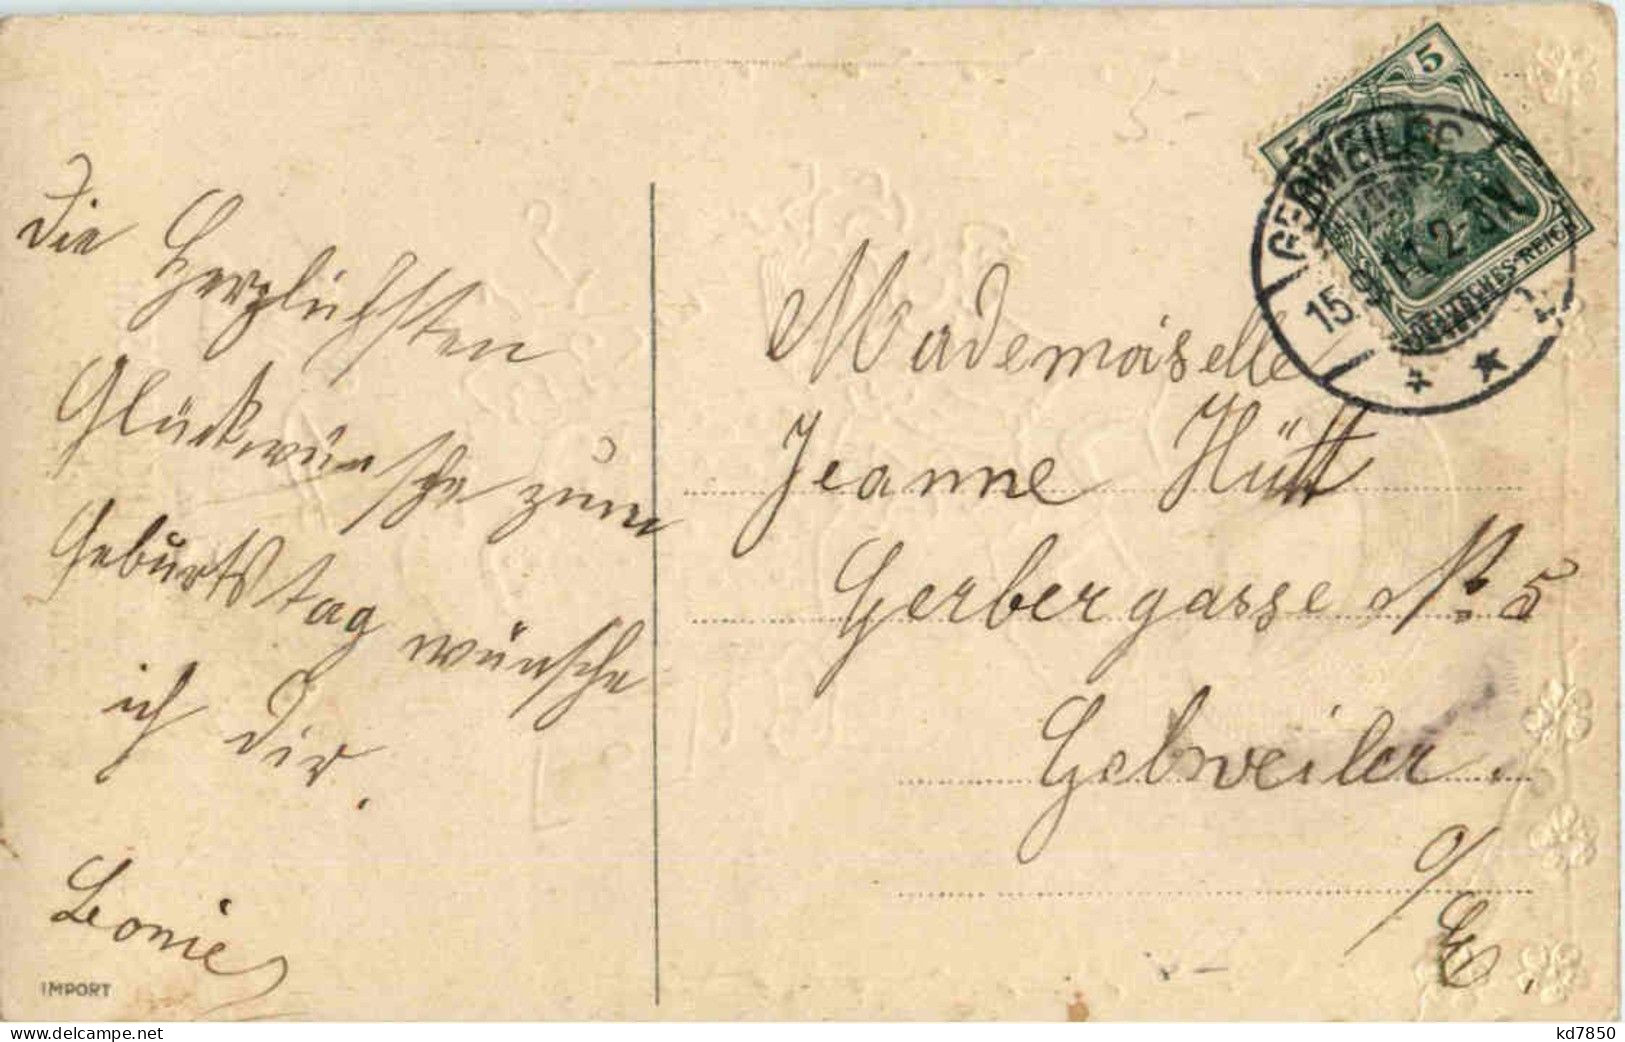 Die Herzlichsten
Glückwünsche zum
Geburtstag wünsche
ich dir.
Leonie
IMPORT
5-
5
5
DEUTSCHES REICH
GEBWEILER
15.9.11.2-3N
Mademoiselle
Jeanne Hütt
Gerbergasse No. 5
Gebweiler.
o/E.
kd7850